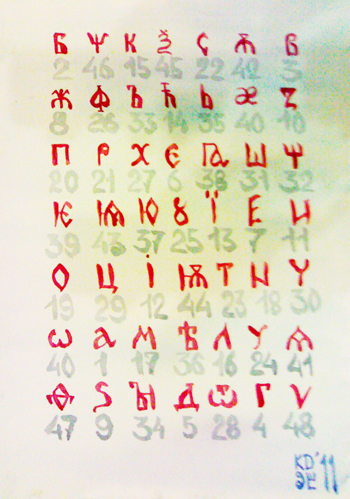 Б Ѱ К Ѯ С Ѫ В
2 46 15 45 22 42 3
Ж Ф Ъ Ћ Ь æ Z
8 26 33 14 35 40 10
П Р Х Є Ꙗ Ш Щ
20 21 27 6 38 31 32
Ѥ Ѩ Ю Ꙋ Ї Е И
39 43 37 25 13 7 11
О Ц І Ѭ Т N Ч
19 29 12 44 23 18 30
Ѡ А М Ѣ Л У Ѧ
40 1 17 36 16 24 41
Ѳ Ѕ Ъ Д Ѿ Г Ѵ
47 9 34 5 28 4 48
KD'11